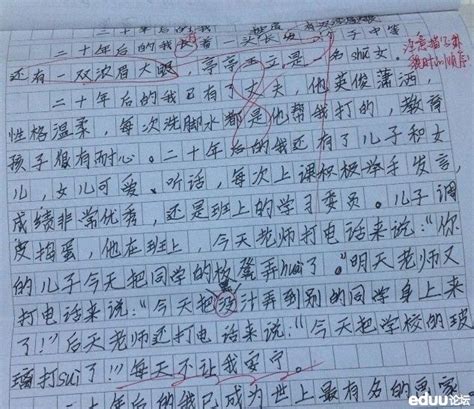 二十年后的我
二十年后的我 一头长发 个子中等
还有一双浓眉大眼，亭亭玉立是一名shú女。
注意描写外
貌时的顺序
二十年后的我已有了丈夫，他英俊潇洒
性格温柔，每次洗脚水都是他帮我打的，教育
孩子很有耐心。二十年后的我还有了儿子和女
儿，女儿可爱、听话，每次上课积极举手发言，
成绩非常优秀，还是班上的学习委员。儿子调
皮捣蛋，他在班上，今天老师打电话来说："你
的儿子今天把同学的板凳弄huì了。"明天老师又
打电话来说："今天把 汁弄到别的同学身上来
了！"后天老师还打电话来说："今天把学校的玻
璃打sui了！"每天不让我安宁。
二十年后的我已成为世上最有名的画家
eduu论坛